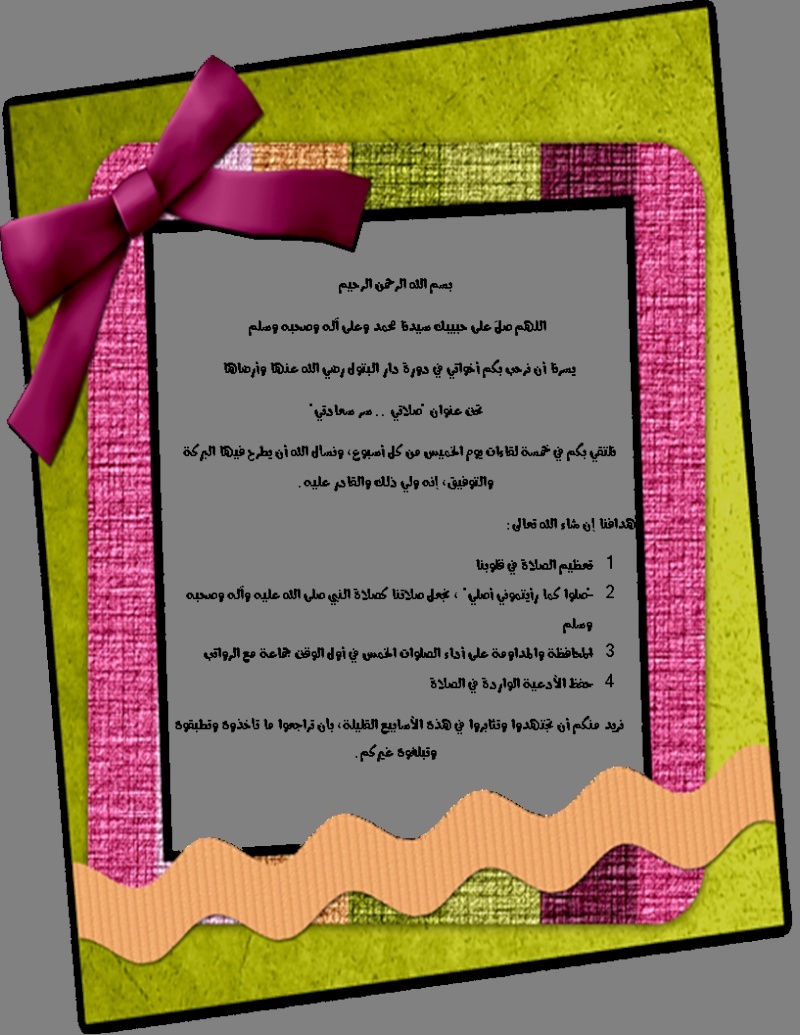 بسم الله الرحمن الرحيم
اللهم صلّ على حبيبك سيدنا محمد وعلى آله وصحبه وسلم
يسرنا أن نرحب بكم أخواتي في دورة دار البتول رضي الله عنها وأرضاها
تحت عنوان "صلاتي .. سر سعادتي"
نلتقي بكم في خمسة لقاءات يوم الخميس من كل أسبوع، ونسأل الله أن يطرح فيها البركة
والتوفيق، إنه ولي ذلك والقادر عليه.
أهدافنا إن شاء الله تعالى:
1 تعظيم الصلاة في قلوبنا
2 "صلوا كما رأيتموني أصلي" ، نجعل صلاتنا كصلاة النبي صلى الله عليه وآله وصحبه
وسلم
3 المحافظة والمداومة على أداء الصلوات الخمس في أول الوقت جماعة مع الرواتب
4 حفظ الأدعية الواردة في الصلاة
نريد منكم أن تجتهدوا وتثابروا في هذه الأسابيع القليلة، بأن تراجعوا ما تأخذوه وتطبقوه
وتبلغوه غيركم.